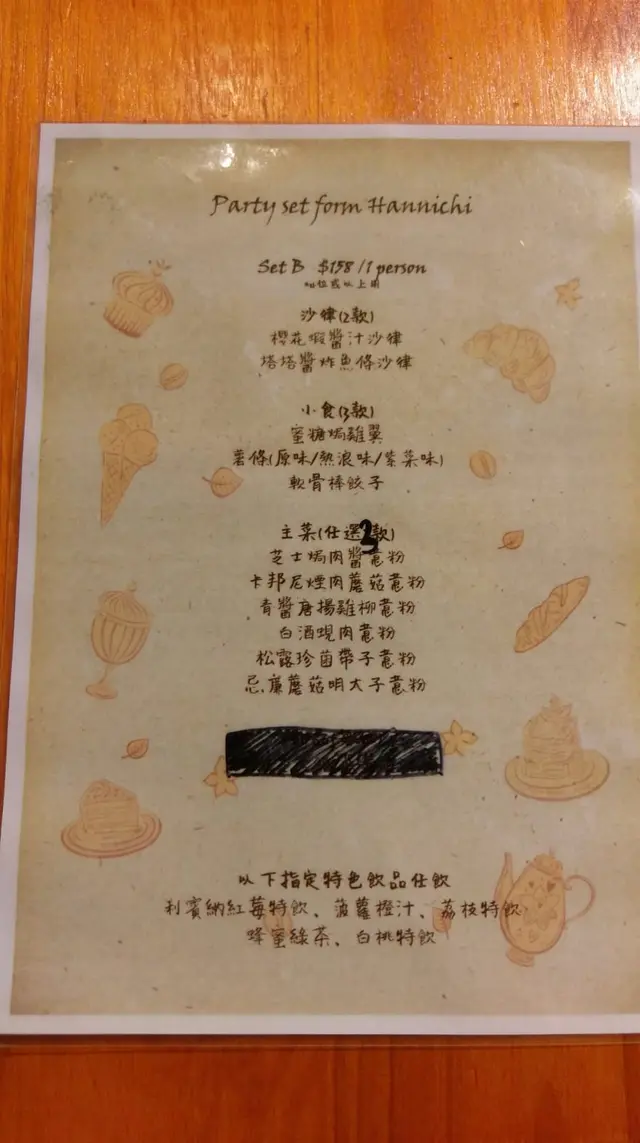 Party set form Hannichi
Set B $158 /1 person
10位或以上用
沙律(2款)
櫻花蝦醬汁沙律
塔塔醬炸魚條沙律
小食(3款)
蜜糖焗雞翼
薯條(原味/熱浪味/紫菜味)
軟骨棒餃子
主菜(任選3款)
芝士焗肉醬意粉
卡邦尼煙肉蘑菇意粉
青醬唐揚雞柳意粉
白酒蜆肉意粉
松露珍菌帶子意粉
忌廉蘑菇明太子意粉
以下指定特色飲品任飲
利賓納紅莓特飲、菠蘿橙汁、荔枝特飲
蜂蜜綠茶、白桃特飲